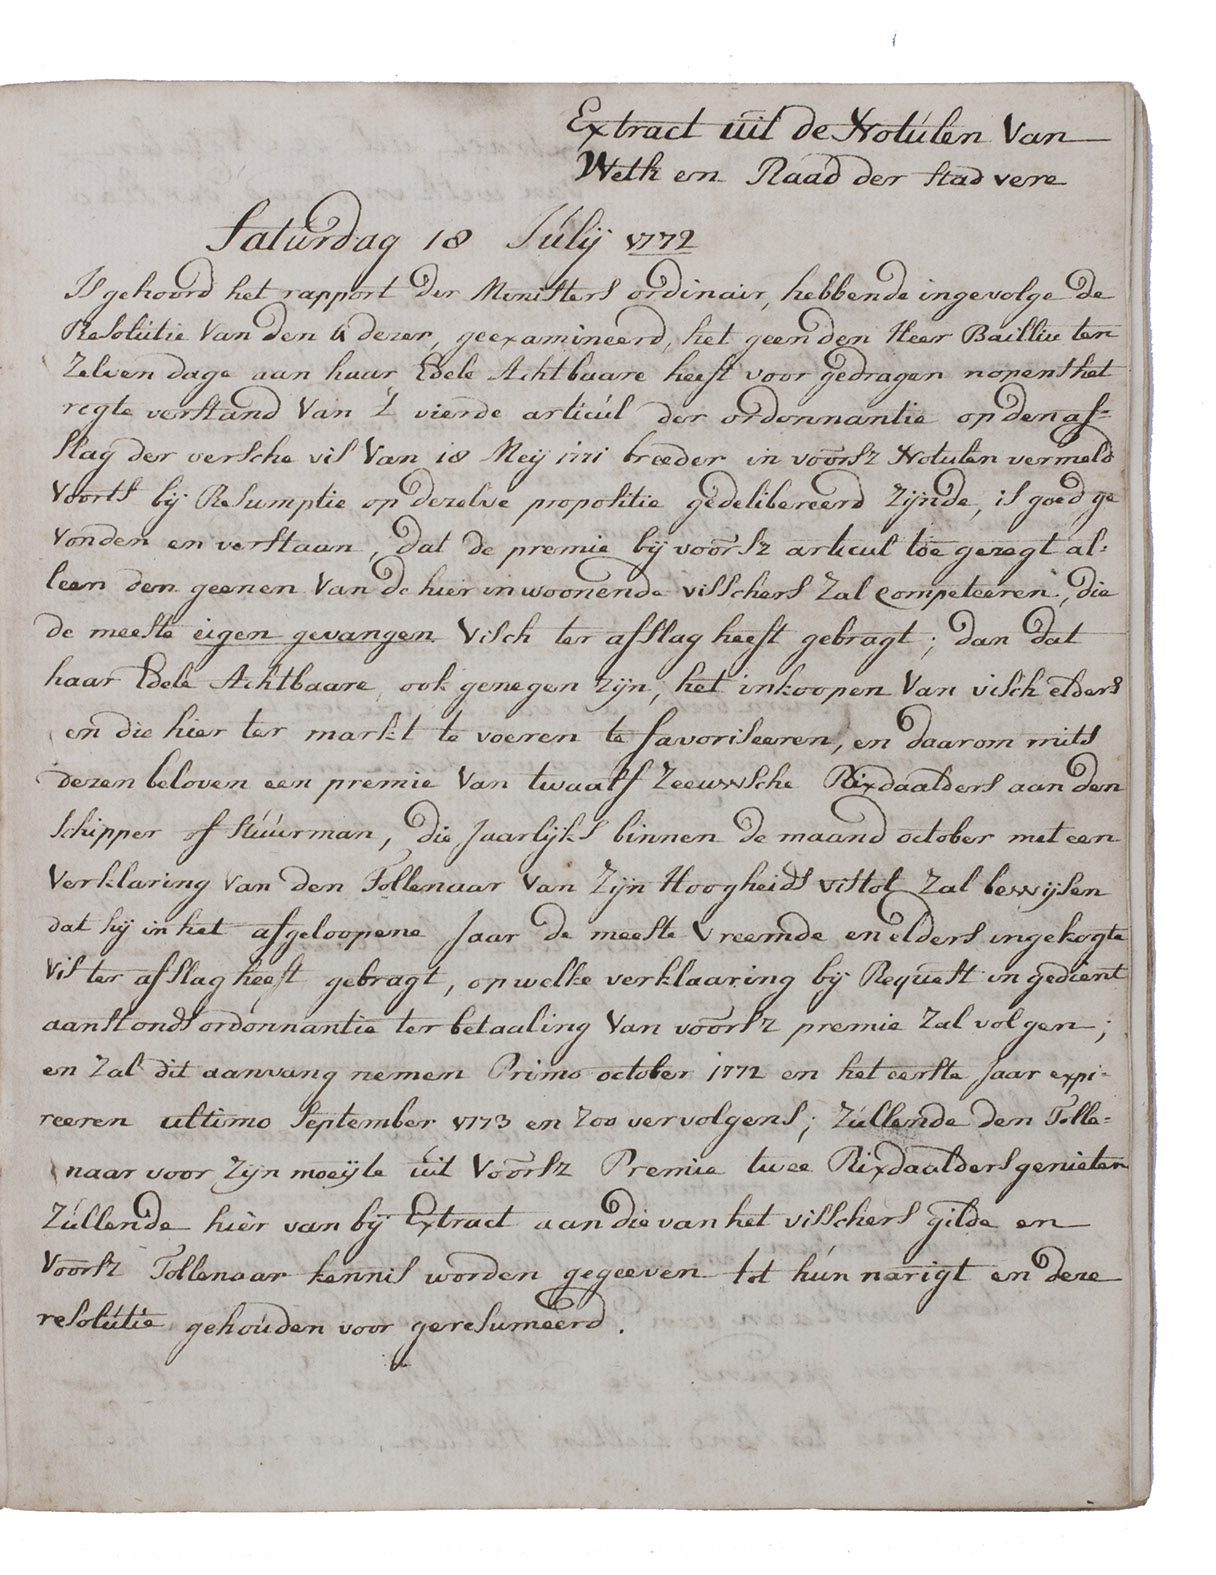 Extract uit de Notulen Van
Weth en Raad der stad vere
Saturdag 18 Julij 1772
Is gehoord het rapport der Ministers ordinair, hebbende ingevolge de
Resolutie Van den 4 dezer, geexamineerd, het geen den Heer Bailliu ten
Zelven dage aan haar Edele Achtbaare heeft voor gedragen nopens het
regte verstand Van 't vierde articul der ordonnantie op den af=
slag der versche vis Van 18 Meij 1771 breeder in voorsz Notulen vermeld
Voorts bij Resumptie op dezelve propositie gedelibereerd Zijnde, is goed ge
vonden en verstaan, dat de premie bij voorsz articul toe gezegt al=
leen den geenen Van de hier inwoonende visschers Zal competeeren, die
de meeste eigen gevangen Visch ter afslag heeft gebragt; dan dat
haar Edele Achtbaare ook genegen zijn, het inkoopen Van visch elders
en die hier ter markt te voeren te favoriseeren, en daarom mits
dezen beloven een premie Van twaalf Zeeuwsche Rixdaalders aan den
Schipper of stuurman, die Jaarlijks binnen de maand october met een
Verklaring Van den Tollenaar Van Zijn Hoogheids vistol Zal bewijsen
dat hij in het afgeloopene Jaar de meeste Vreemde en elders ingekogte
Vis ter afslag heeft gebragt, op welke verklaaring bij Request in gedient
aanstonds ordonnantie ter betaaling Van voorsz premie Zal volgen;
en Zal dit aanvang nemen Primo october 1772 en het eerste Jaar expi=
reeren ultimo September 1773 en Zoo vervolgens; Zullende den Tolle=
naar voor Zijn moeijte uit Voorsz Premie twee Rixdaalders genieten
Zullende hier van bij Extract aan die van het visschers gilde en
Voorsz Tollenaar kennis worden gegeeven tot hun narigt en deze
resolutie gehouden voor geresumeerd.